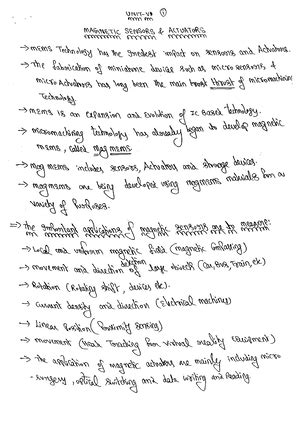 UNIT-VII ①
MAGNETIC SENSORS & ACTUATORS
→ MEMS Technology has the Greatest impact on sensors and Actuators.
→ The fabrication of miniature devices such as micro sensors &
micro Actuators has long been the main thrust of micromachine
Technology
→ MEMS is an expansion and evolution of IC Based technology.
→ micromachining technology has already began to develop magnetic
MEMS, called mag mems
→ mag mems includes sensors, Actuators and storage devices.
→ magmems are being developed using magmems materials for a
variety of Purposes.
⇒ The important applications of magnetic sensors are to measure:
→ Local and uniform magnetic field (magnetic Compassing)
→ movement and direction detection of large objects (Car, Bus, Train, etc)
→ Rotation (Rotating shaft, devices etc).
→ current density and direction (Electrical machines)
→ Linear Position (Proximity sensing)
→ movement (Head Tracking for virtual reality equipment)
→ The application of magnetic actuators are mainly including micro
-surgery, optical switching and data writing and reading.